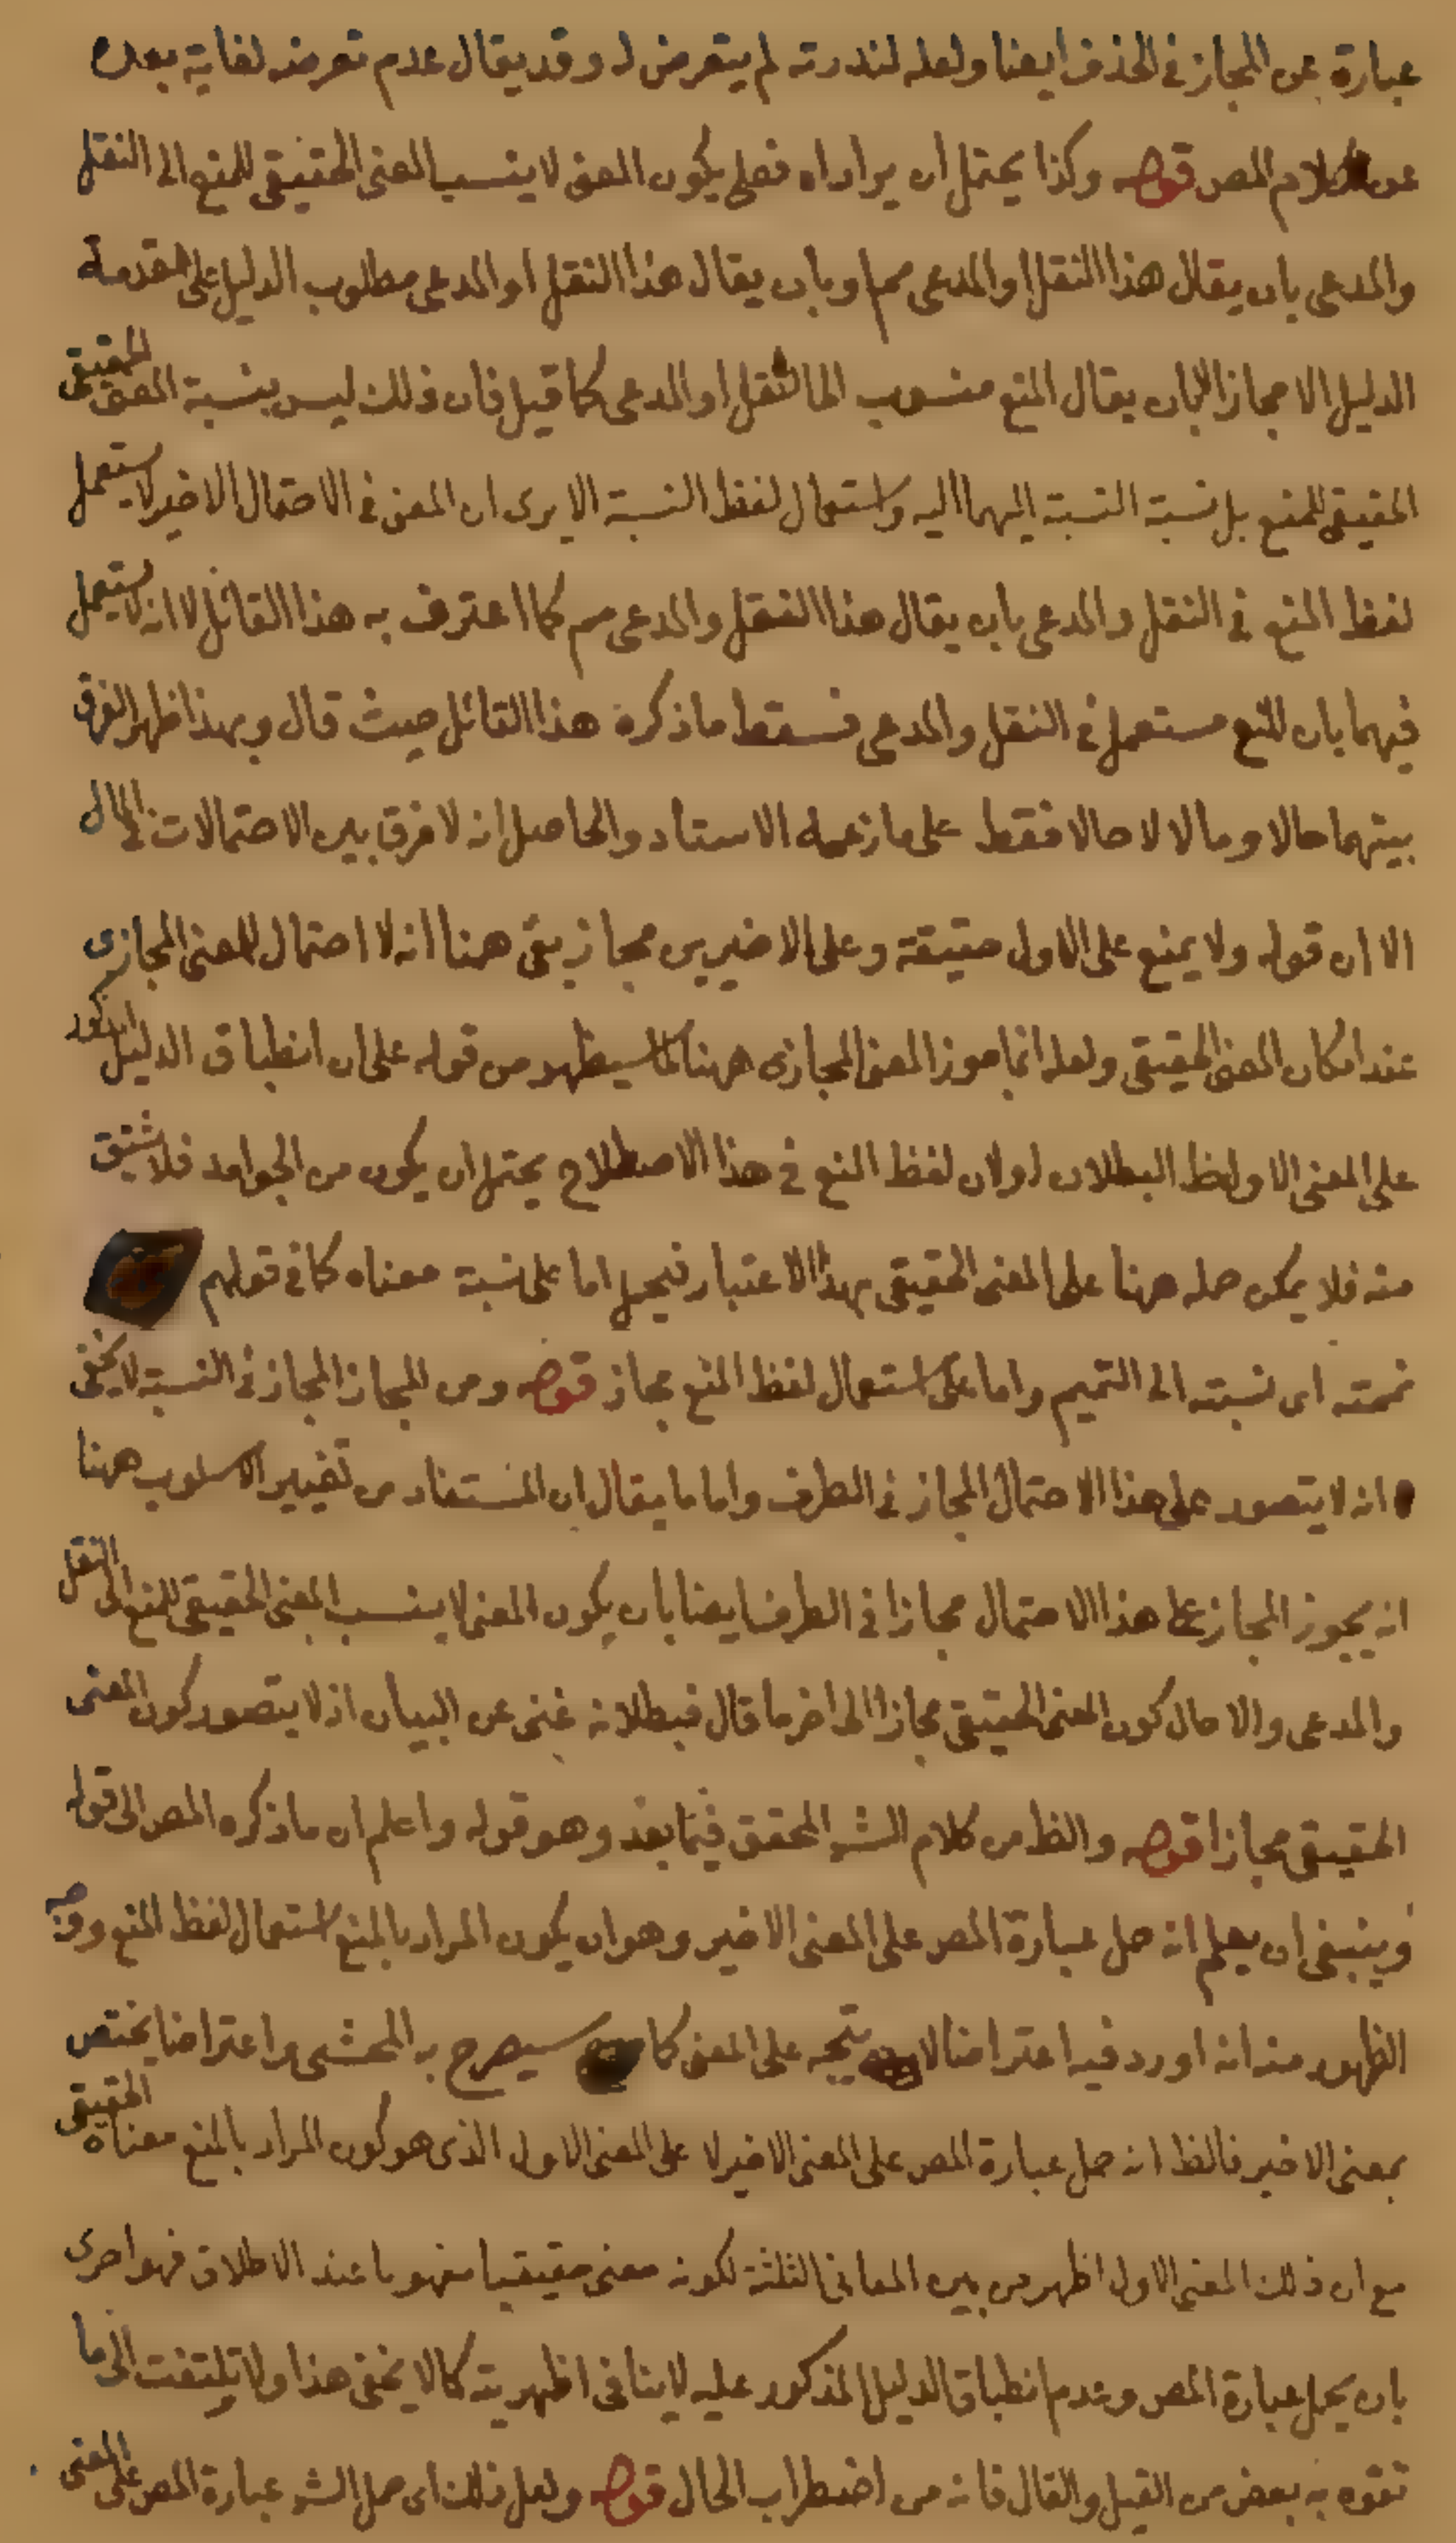 عبارة عن المجاز في الحذف ايضا ولعله لندرته لم يتعرض له وقد يقال عدم تعرضه لغاية بعده
عن كلام المص قوله وكذا يحتمل ان يراد اه فعلى يكون المعنى لا ينسب المعنى الحقيقي للمنع الى النقل
والمدعى بان يقال هذا النقل او المدعى مم او بان يقال هذا النقل او المدعى مطلوب الدليل على مقدمة
الدليل الا مجازا لا بان يقال المنع منسوب الى النقل او المدعى كما قيل فان ذلك ليس بنسبة المعنى الحقيقي
الحقيقي للمنع بل نسبة النسبة اليهما اليه واستعمال لفظ النسبة الا يرى ان المعنى في الاحتمال الاخير لا يستعمل
لفظ المنع في النقل والمدعى بان يقال هذا النقل والمدعى مم كما اعترف به هذا القائل لا انه لا يستعمل
فيهما بان المنع مستعمل في النقل والمدعى فسقط ما ذكره هذا القائل حيث قال وبهذا ظهر الفرق
بينهما حالا ومالا لا حالا فقط على ما زعمه الاستاد والحاصل انه لا فرق بين الاحتمالات في المال
الا ان قوله ولا يمنع على الاول حقيقة وعلى الاخيرين مجاز بقى هنا انه لا احتمال للمعنى المجازى
عند امكان المعنى الحقيقي ولعله انما جوز المعنى المجازى ههنا كما سيظهر من قوله على ان انطباق الدليل المذكور
على المعنى الاول ظ البطلان او لان لفظ المنع في هذا الاصطلاح يحتمل ان يكون من الجوامد فلا يشتق
منه فلا يمكن حمله ههنا على المعنى الحقيقي بهذا الاعتبار فيحمل اما على نسبة معناه كما في قولهم
تممته اى نسبته الى التميم واما على استعمال لفظ المنع مجاز قوله ومن المجاز المجاز في النسبة لا يخفى
انه لا يتصور على هذا الاحتمال المجاز في الطرف واما ما يقال ان المستفاد من تغيير الاسلوب ههنا
انه يجوز المجاز على هذا الاحتمال مجازا في الطرف ايضا بان يكون المعنى لا ينسب المعنى الحقيقي للمنع الى النقل
والمدعى والا حال كون المعنى الحقيقي مجازا الى اخر ما قال فبطلانه غنى عن البيان اذ لا يتصور كون المعنى
الحقيقي مجازا قوله والظ من كلام الش المحقق فيما بعد وهو قوله واعلم ان ما ذكره المص الى قوله
وينبغى ان يعلم انه حمل عبارة المص على المعنى الاخير وهو ان يكون المراد بالمنع استعمال لفظ المنع ووجه
الظهور منه انه اورد فيه اعتراضا لا يتجه على المعنى كما سيصرح به المحشى واعتراضا يختص
بمعنى الاخير فالظ انه حمل عبارة المص على المعنى الاخير لا على المعنى الاول الذى هو كون المراد بالمنع معناه الحقيقي
مع ان ذلك المعنى الاول اظهر من بين المعانى الثلثة لكونه معنى حقيقيا مفهوما عند الاطلاق فهو احرى
بان يحمل عبارة المص وعدم انطباق الدليل المذكور عليه لا ينافى اظهريته كما لا يخفى هذا ولا تلتفت الى ما
تفوه به بعض من القيل والقال فانه من اضطراب الحال قوله ولعل ذلك اى حمل الش عبارة المص على المعنى